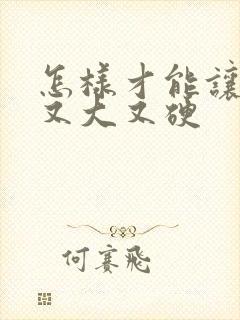 怎樣才能讓
又大又硬
何賽飛